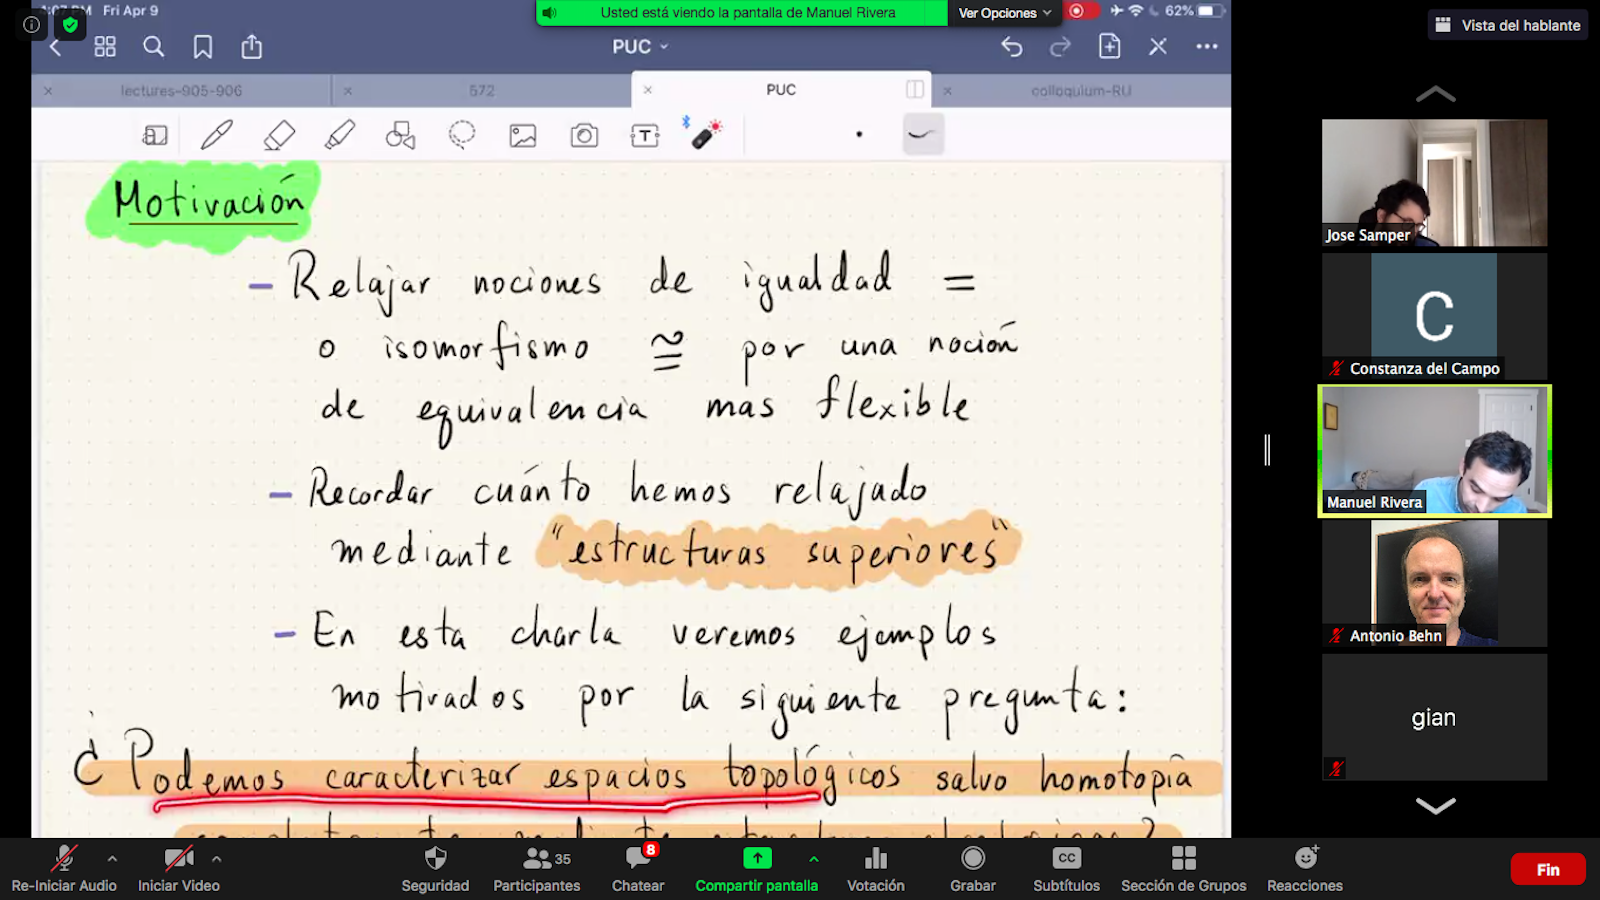 4:07 PM Fri Apr 9
Usted está viendo la pantalla de Manuel Rivera
Ver Opciones
62%
Vista del hablante
PUC
lectures-905-906
572
PUC
colloquium-RU
Motivación
- Relajar nociones de igualdad =
o isomorfismo ≅ por una noción
de equivalencia mas flexible
- Recordar cuánto hemos relajado
mediante "estructuras superiores"
- En esta charla veremos ejemplos
motivados por la siguiente pregunta:
¿Podemos caracterizar espacios topológicos salvo homotopía
Jose Samper
C
Constanza del Campo
Manuel Rivera
Antonio Behn
gian
Re-Iniciar Audio
Iniciar Video
Seguridad
Participantes
35
Chatear
8
Compartir pantalla
Votación
Grabar
CC
Subtítulos
Sección de Grupos
Reacciones
Fin